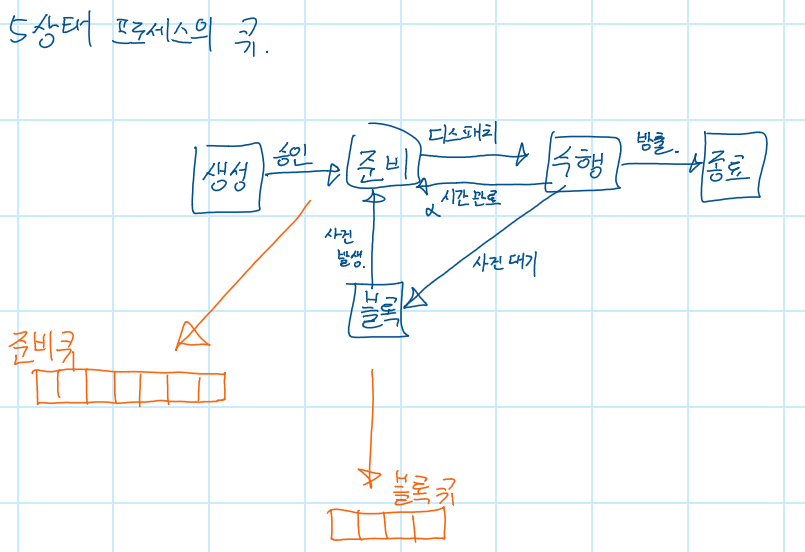 5상태 프로세스의 큐.
생성
승인
준비
디스패치
수행
방출.
종료
시간만료
α
사건
발생.
사건 대기
블록
준비큐
블록큐